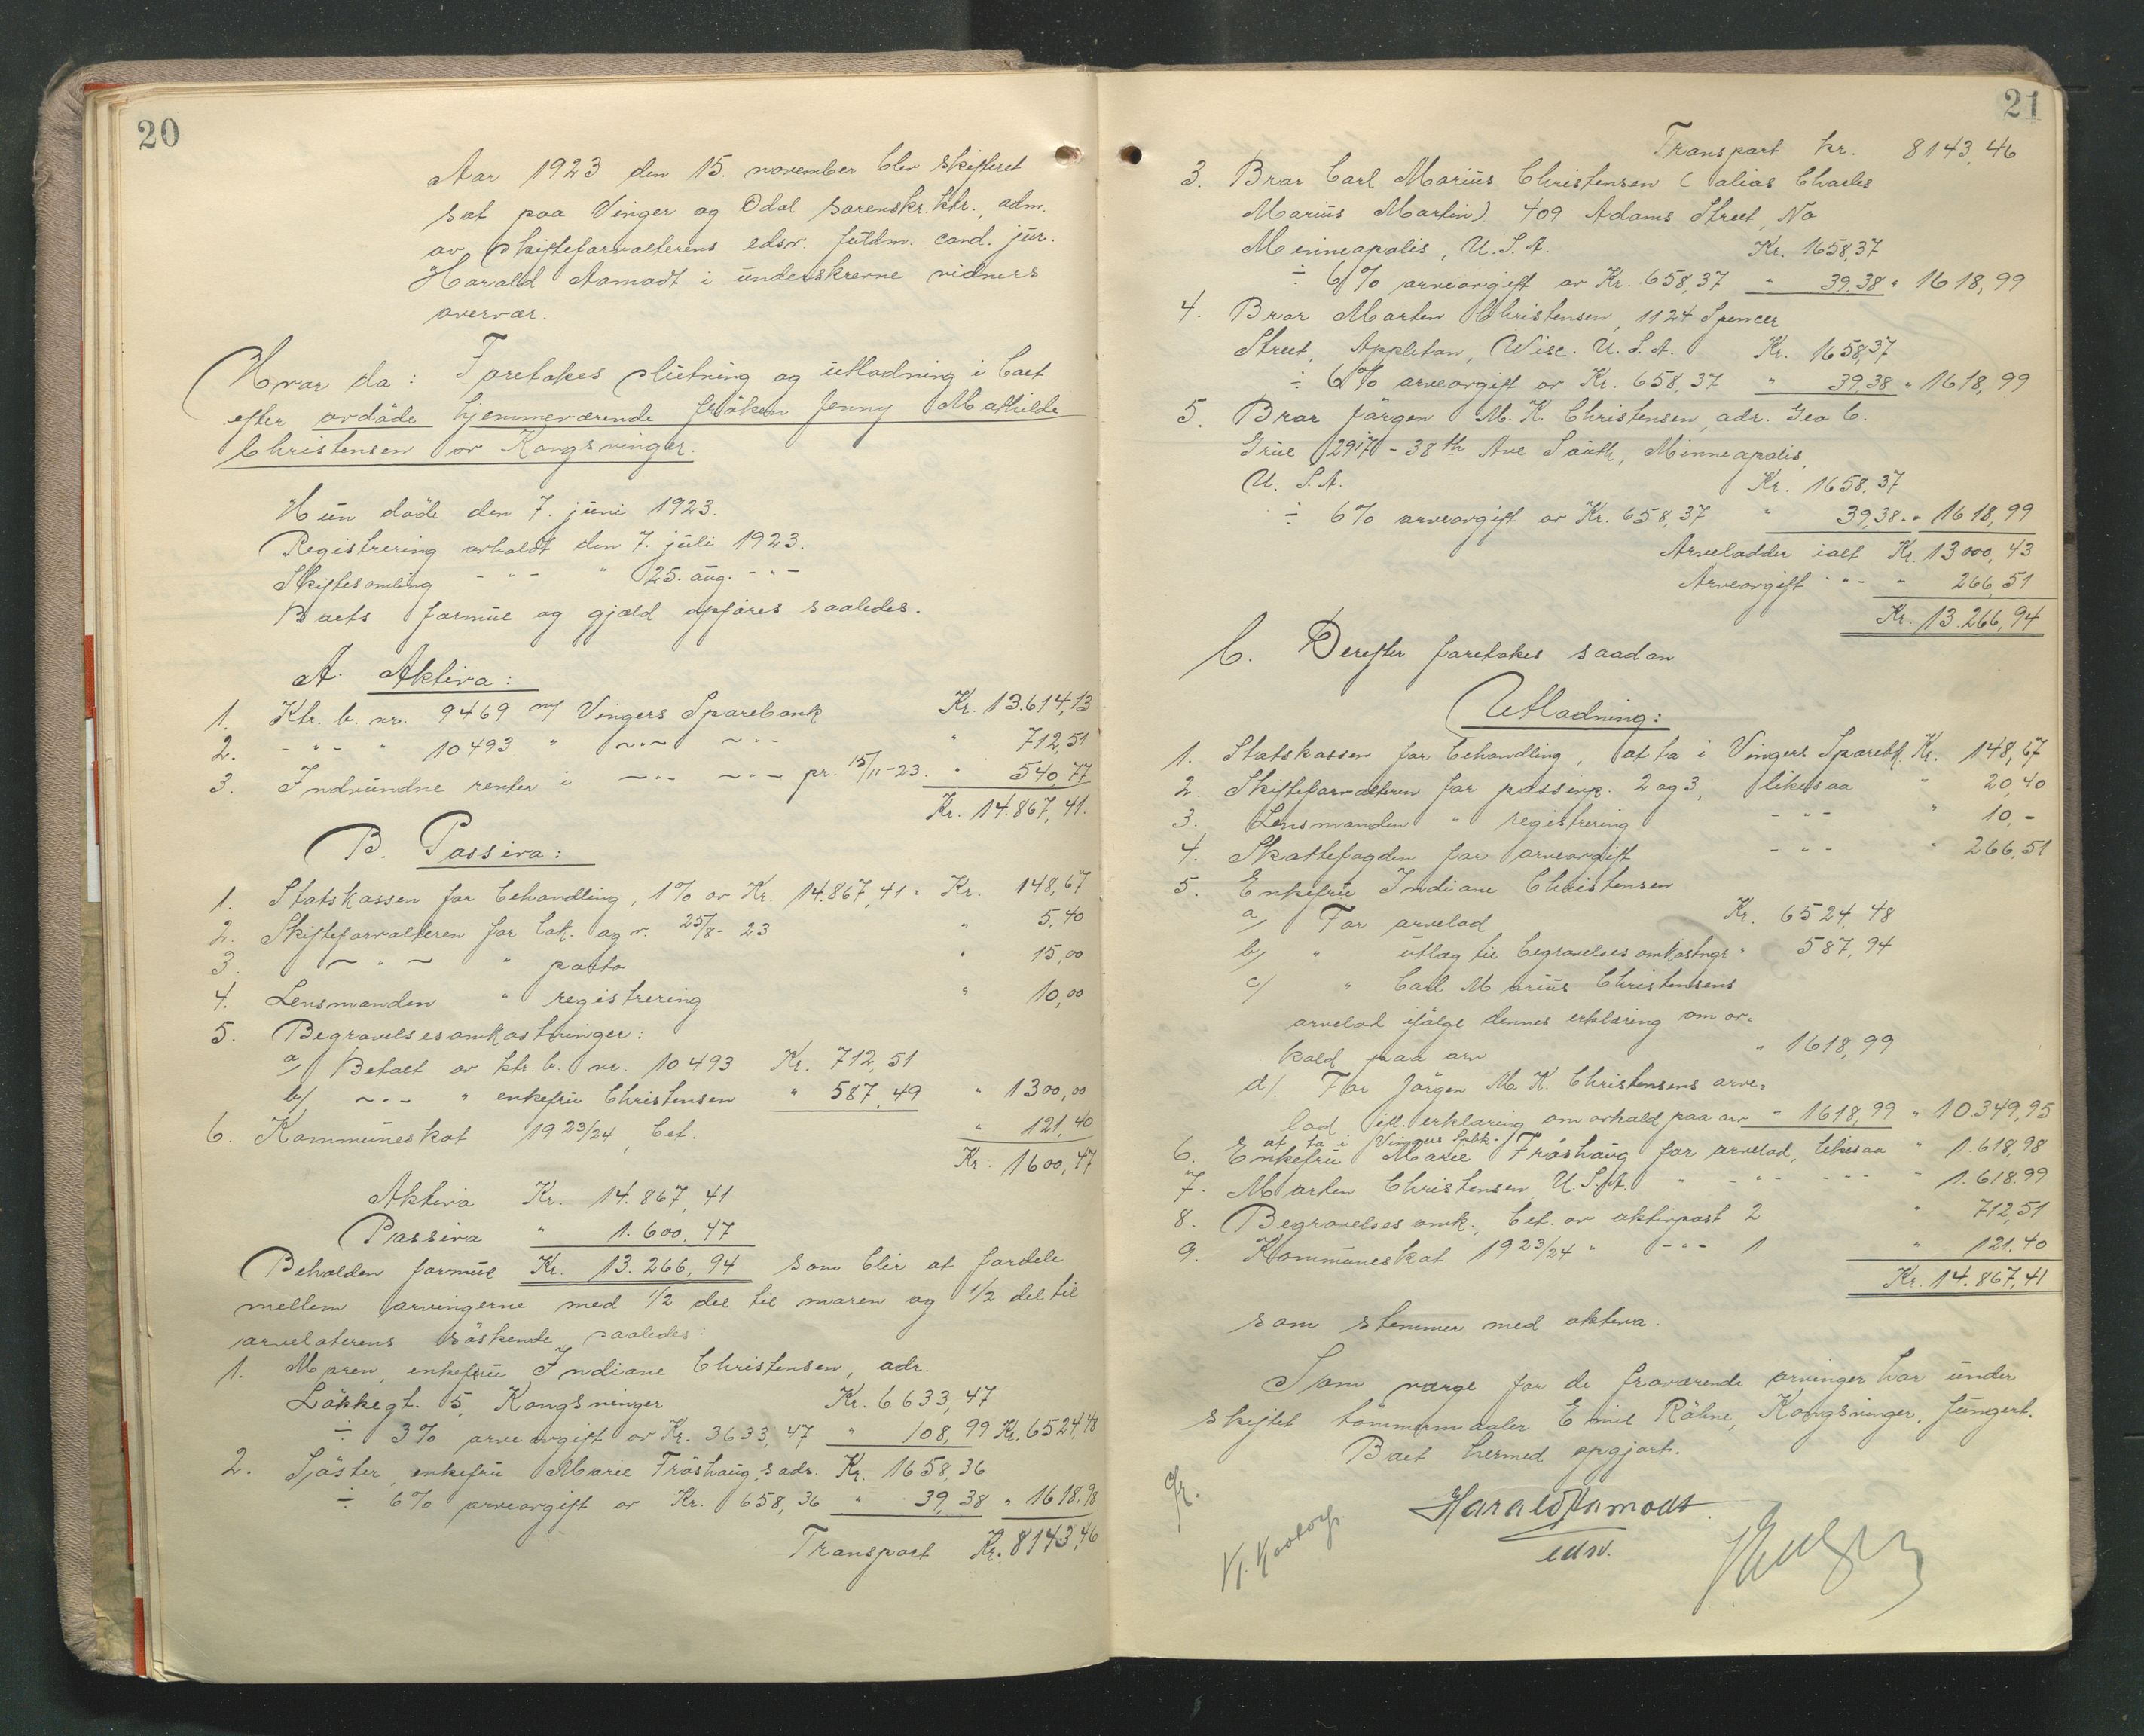 20
Aar 1923 den 15. november blev skifteret
sat paa Vinger og Odal sorenskr.ktr., adm.
av skifteforvalterens edsv. fuldm. cand. jur.
Harald Aamodt i underskrevne vidners
overvær.
Hvor da: Foretokes slutning og utlodning i boet
efter avdöde hjemmeværende fröken Jenny Mathilde
Christensen av Kongsvinger.
Hun döde den 7. juni 1923.
Registrering avholdt den 7. juli 1923.
Skiftesamling - " - " 25. aug. - " -
Boets formue og gjæld opföres saaledes.
A. Aktiva:
1. Ktr. b. nr. 9469 m/ Vingers Sparebank Kr. 13.614,13
2. - " - " 10493 " - " - - " - " 712,51
3. Indvundne renter i - " - - " - pr. 15/11-23. " 540,77
Kr. 14.867,41.
B. Passiva:
1. Statskassen for behandling, 1% av Kr. 14.867,41 = Kr. 148,67
2. Skifteforvalteren for bok. og v. 25/8-23 " 5,40
3. - " - " porto " 15,00
4. Lensmanden " registrering " 10,00
5. Begravelsesomkostninger:
a/ Betalt av ktr. b. nr. 10493 Kr. 712,51
b/ - " - " enkefru Christensen " 587,49 " 1300,00
6. Kommuneskat 1923/24, bet. " 121,40
Kr. 1600,47
Aktiva Kr. 14.867,41
Passiva " 1.600,47
Beholden formue Kr. 13.266,94 som blir at fordele
mellem arvingerne med 1/2 del til moren og 1/2 del til
arvelaterens söskende saaledes:
1. Moren, enkefru Indiane Christensen, adr.
Lökkegt. 5, Kongsvinger Kr. 6.633,47
÷ 3% arveavgift av Kr. 3633,47 " 108,99 Kr. 6524,48
2. Söster, enkefru Marie Fröshaug, s adr. Kr. 1658,36
÷ 6% arveavgift av Kr. 658,36 " 39,38 " 1618,98
Transport Kr. 8143,46
21
Transport kr. 8143,46
3. Bror Carl Marius Christensen (alias Charles
Marius Martin). 409 Adams Street, No
Minneapolis, U.S.A. Kr. 1658,37
÷ 6% arveavgift av Kr. 658,37 " 39,38 " 1618,99
4. Bror Morten Christensen, 1124 Spencer
Street, Appleton, Wisc. U.S.A. Kr. 1658,37
÷ 6% arveavgift av Kr. 658,37 " 39,38 " 1618,99
5. Bror Jörgen M. K. Christensen, adr. Geo C.
Grue 2917 - 38th Ave South, Minneapolis,
U.S.A. Kr. 1658,37
÷ 6% arveavgift av Kr. 658,37 " 39,38 " 1618,99
Arvelodder ialt Kr. 13000,43
Arveavgift - " - " 266,51
Kr. 13.266,94
C. Derefter foretokes saadan
Utlodning:
1. Statskassen for behandling, at ta i Vingers Sparebk. Kr. 148,67
2. Skifteforvalteren for passivp. 2 og 3, likesaa " 20,40
3. Lensmanden " registrering - " - " 10,-
4. Skattefogden for arveavgift - " - " 266,51
5. Enkefru Indiane Christensen
a/ For arvelod Kr. 6524,48
b/ " utlæg til begravelsesomkostngr " 587,94
c/ " Carl Marius Christensens
arvelod ifölge dennes erklæring om av-
kald paa arv " 1618,99
d/. For Jörgen M. K. Christensens arve-
lod ifl. erklæring om avkald paa arv " 1618,99 " 10.349,95
at ta i Vingers Spbk.
6. Enkefru Marie Fröshaug for arvelod, likesaa " 1.618,98
7. Morten Christensen U.S.A. " - " - - " - " 1.618.99
8. Begravelsesomk., bet. av aktivpost 2 " 712,51
9. Kommuneskat 1923/24 " - " - 1 " 121.40
Kr. 14.867,41
som stemmer med aktiva.
Som værge for de fraværende arvinger har under
skiftet tömmermaler Emil Röhne, Kongsvinger, fungert.
Boet hermed opgjort.
Harald Aamodt
edsv.